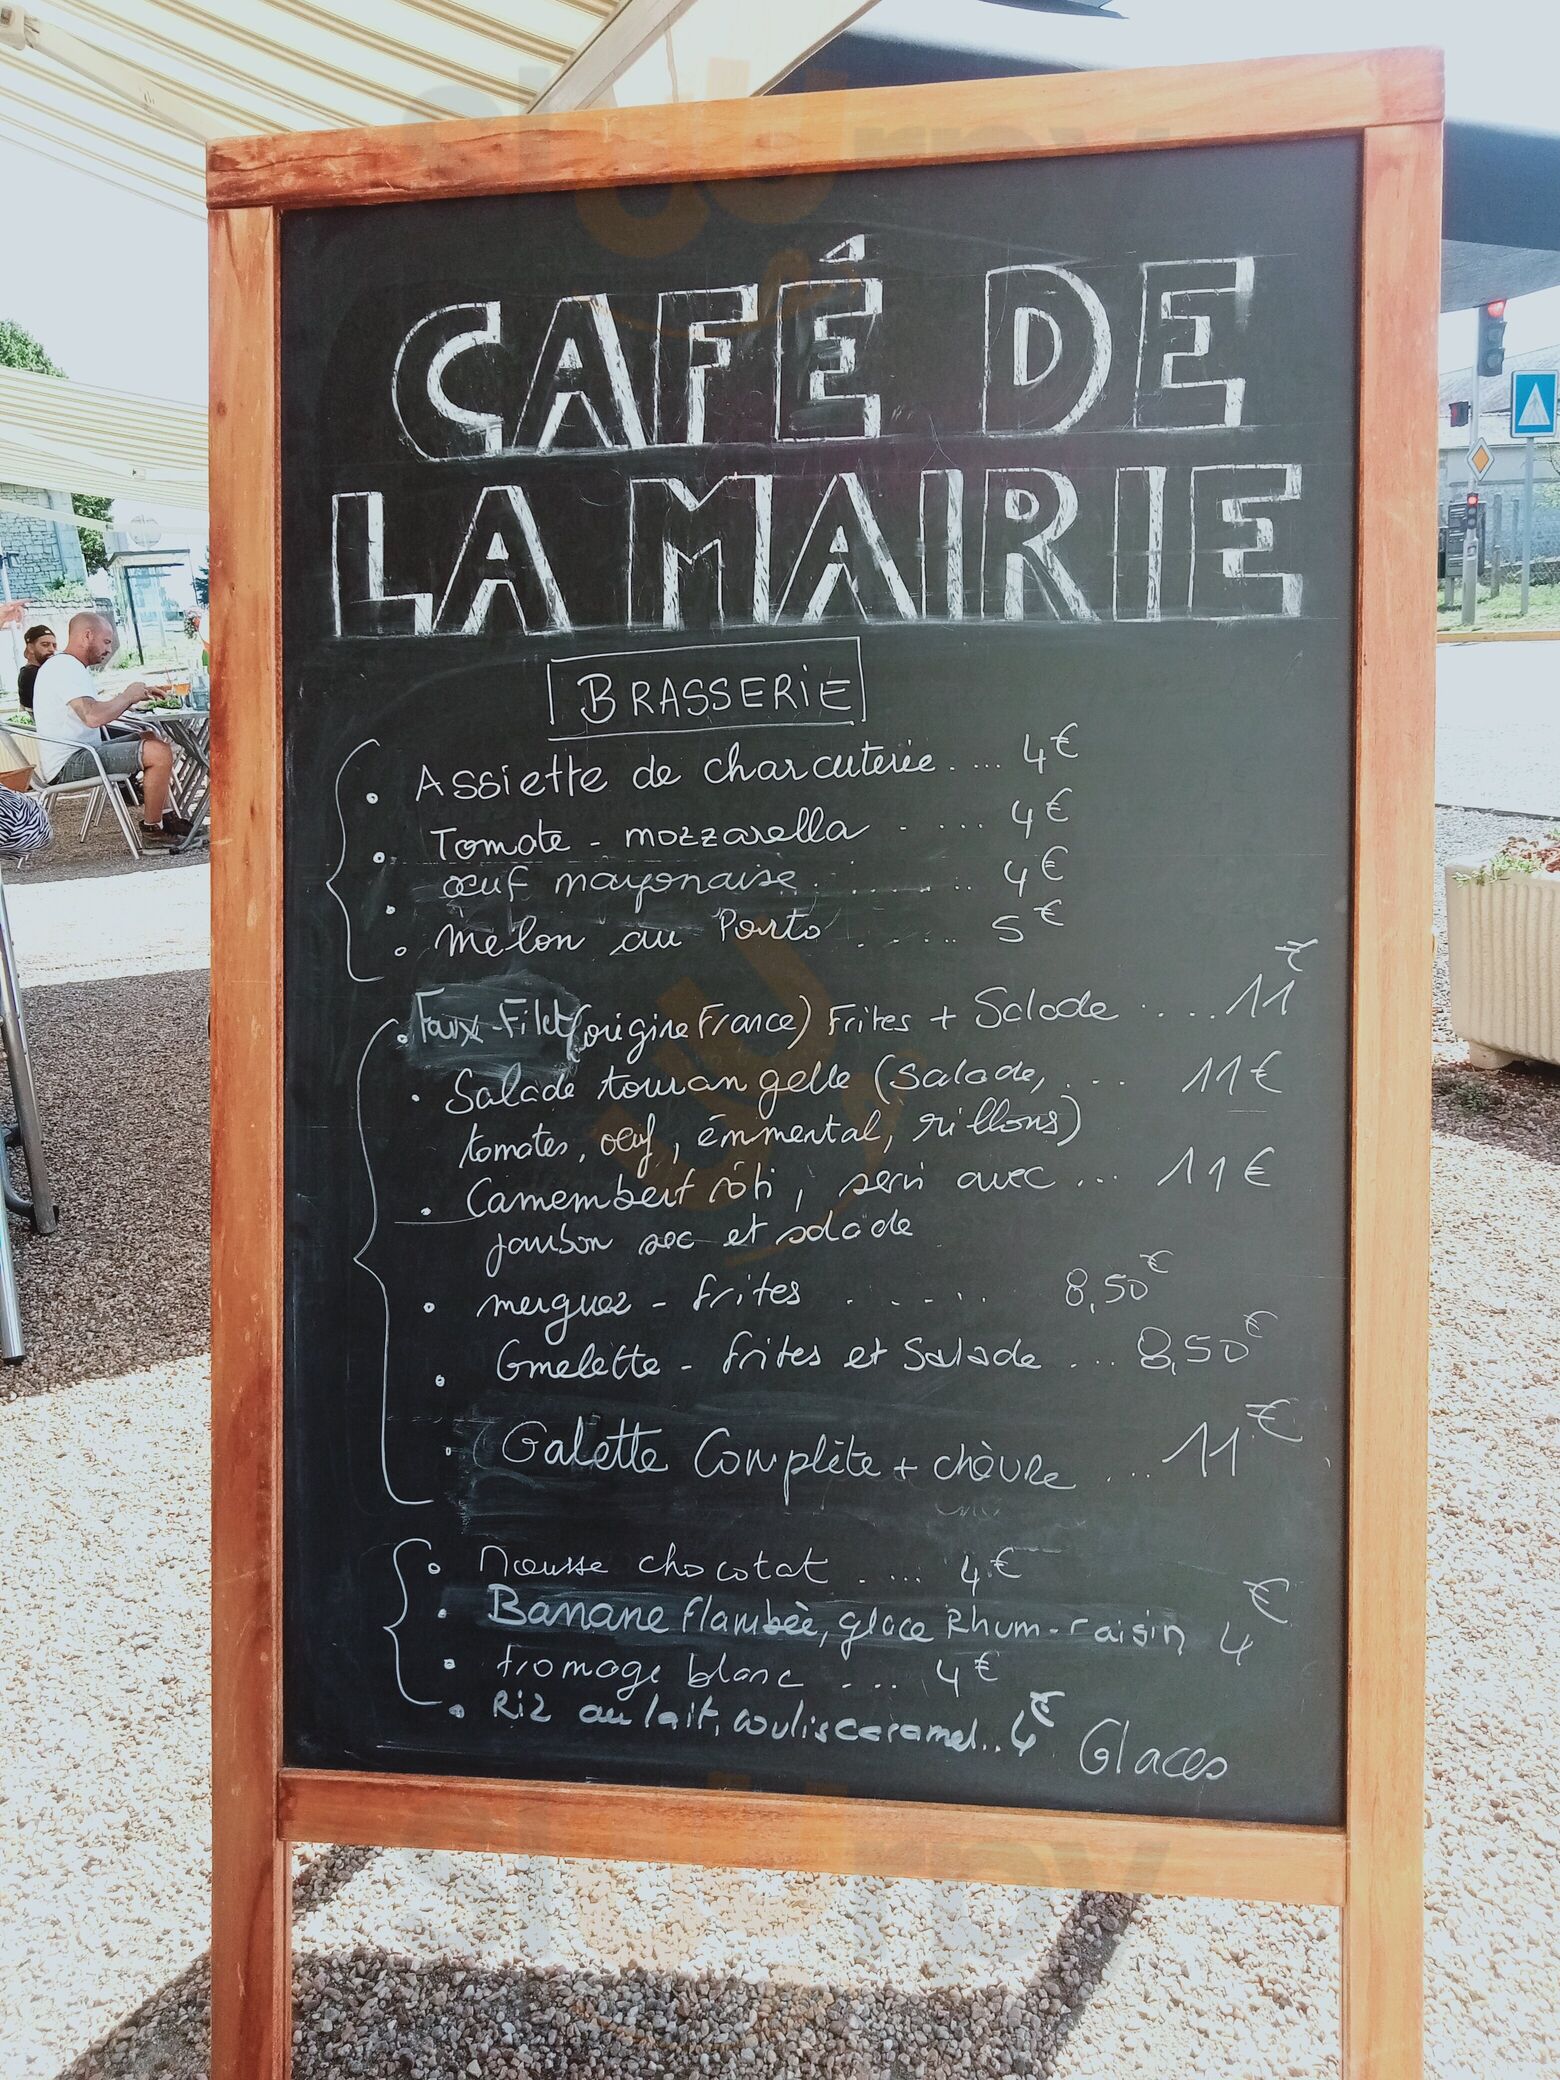 CAFÉ DE
LA MAIRIE
BRASSERIE
Assiette de charcuterie..... 4€
Tomate - mozzarella ..... 4€
œuf mayonaise ..... 4€
Melon au Porto ..... 5€
Faux-Filet (origine France) Frites + Salade .... 11€
Salade tourangelle (salade, ... 11€
tomates, œuf, émmental, rillons)
Camembert rôti, servi avec ... 11€
jambon sec et salade
merguez - frites ..... 8,50€
Omelette - frites et Salade ... 8,50€
Galette Complète + chèvre .... 11€
Mousse chocolat .... 4€
Banane flambée, glace Rhum-raisin 4€
fromage blanc .... 4€
Riz au lait, coulis caramel.. 4€
Glaces